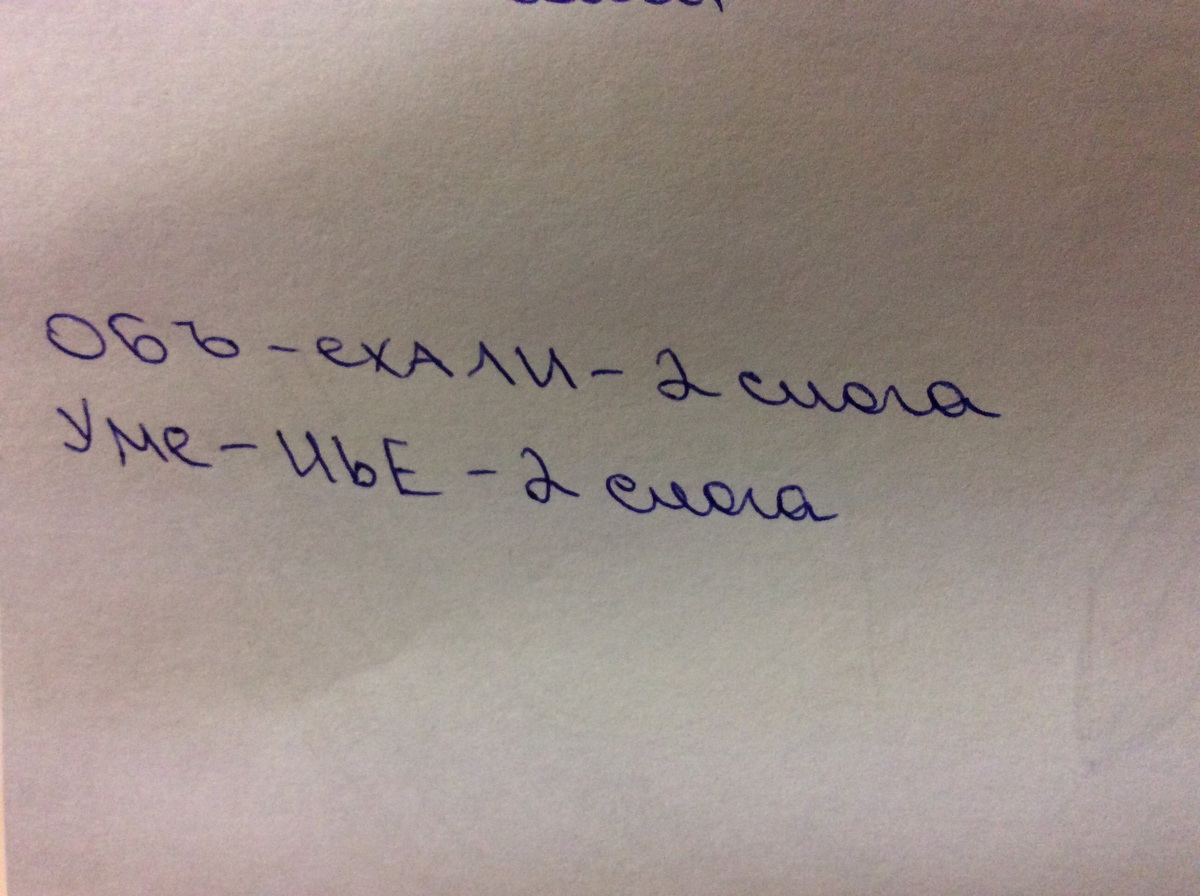 ОБЪ - еХАЛИ - 2 слога
Уме - НЬЕ - 2 слога